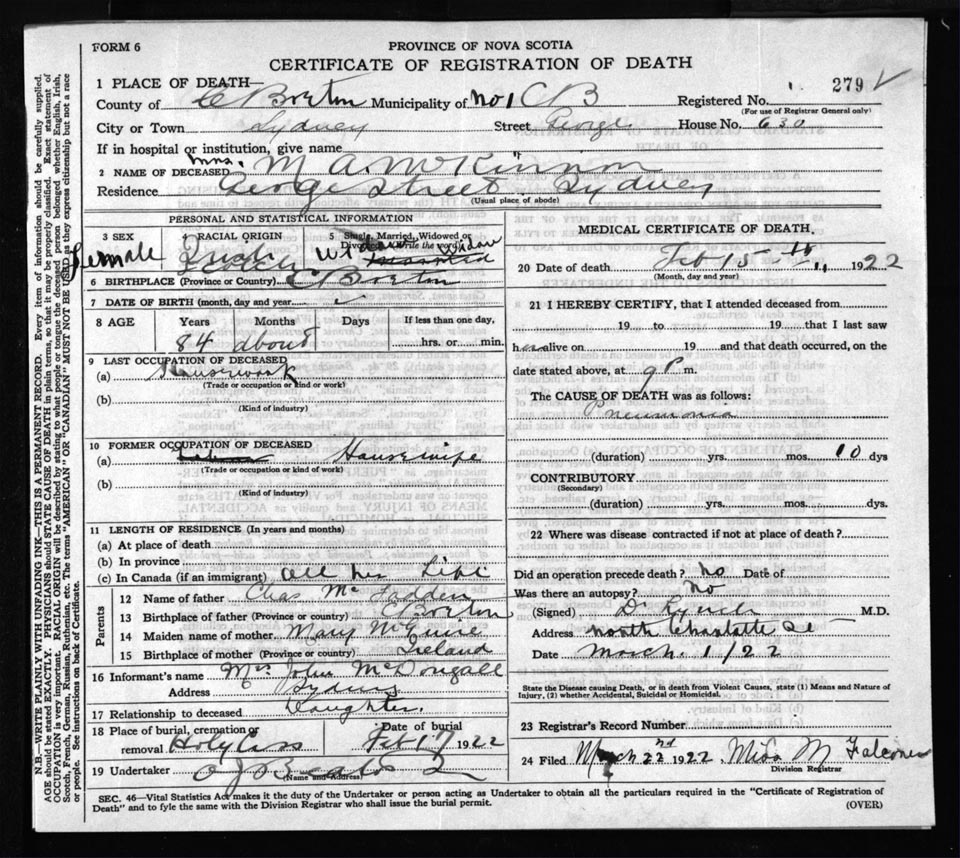 FORM 6
PROVINCE OF NOVA SCOTIA
CERTIFICATE OF REGISTRATION OF DEATH
1 PLACE OF DEATH—
County of C Breton Municipality of No 1 C B Registered No. 279
(For use of Registrar General only)
City or Town Sydney Street George House No. 630
If in hospital or institution, give name
2 NAME OF DECEASED Mrs. M A McKinnon
Residence George Street Sydney
(Usual place of abode)
PERSONAL AND STATISTICAL INFORMATION
3 SEX 4 RACIAL ORIGIN 5 Single, Married, Widowed or Divorced (write the word)
Female Irish Widow
6 BIRTHPLACE (Province or Country) C Breton
7 DATE OF BIRTH (month, day and year)
8 AGE Years Months Days If less than one day,
84 about 8 hrs. or min.
9 LAST OCCUPATION OF DECEASED
(a) Housework
(Trade or occupation or kind of work)
(b)
(Kind of industry)
10 FORMER OCCUPATION OF DECEASED
(a) Housewife
(Trade or occupation or kind of work)
(b)
(Kind of industry)
11 LENGTH OF RESIDENCE (In years and months)
(a) At place of death
(b) In province
(c) In Canada (if an immigrant) all her Life
Parents
12 Name of father Chas Mc Fadden
13 Birthplace of father (Province or country) C Breton
14 Maiden name of mother Mary McGuire
15 Birthplace of mother (Province or country) Ireland
16 Informant's name Mrs John McDougall
Address Sydney
17 Relationship to deceased Daughter.
18 Place of burial, cremation or removal Date of burial
Feb 17 1922
19 Undertaker
(Name and Address)
MEDICAL CERTIFICATE OF DEATH.
20 Date of death Feb 15 th 1922
(Month, day and year)
21 I HEREBY CERTIFY, that I attended deceased from
19 to 19 that I last saw
h er alive on 19 and that death occurred, on the
date stated above, at 9 P m.
The CAUSE OF DEATH was as follows:
Pneumonia
(duration) yrs. mos. 10 dys
CONTRIBUTORY
(Secondary)
(duration) yrs. mos. dys.
22 Where was disease contracted if not at place of death?
Did an operation precede death? No Date of
Was there an autopsy? No
(Signed) Dr Lynch M.D.
Address North Charlotte St
Date March. 1/22
State the Disease causing Death, or in death from Violent Causes, state (1) Means and Nature of
Injury, (2) whether Accidental, Suicidal or Homicidal.
23 Registrar's Record Number
24 Filed March 22nd 1922 Miss M Falconer
Division Registrar
SEC. 46—Vital Statistics Act makes it the duty of the Undertaker or person acting as Undertaker to obtain all the particulars required in the "Certificate of Registration of
Death" and to fyle the same with the Division Registrar who shall issue the burial permit.
(OVER)
N.B.—WRITE PLAINLY WITH UNFADING INK—THIS IS A PERMANENT RECORD. Every item of information should be carefully supplied.
AGE should be stated EXACTLY. PHYSICIANS should STATE CAUSE OF DEATH in plain terms, so that it may be properly classified. Exact statement of
OCCUPATION is very important. RACIAL ORIGIN will be described by stating to what people or tongue the deceased person belonged whether English, Irish,
Scotch, French, German, Russian, Ruthenian, etc. The terms "AMERICAN" OR "CANADIAN" MUST NOT BE USED as they express citizenship but not a race
or people. See instructions on back of Certificate.